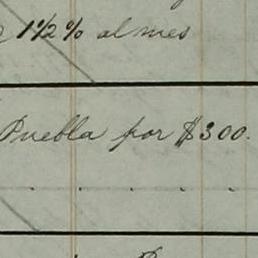 1½% al mes
Puebla por $300.